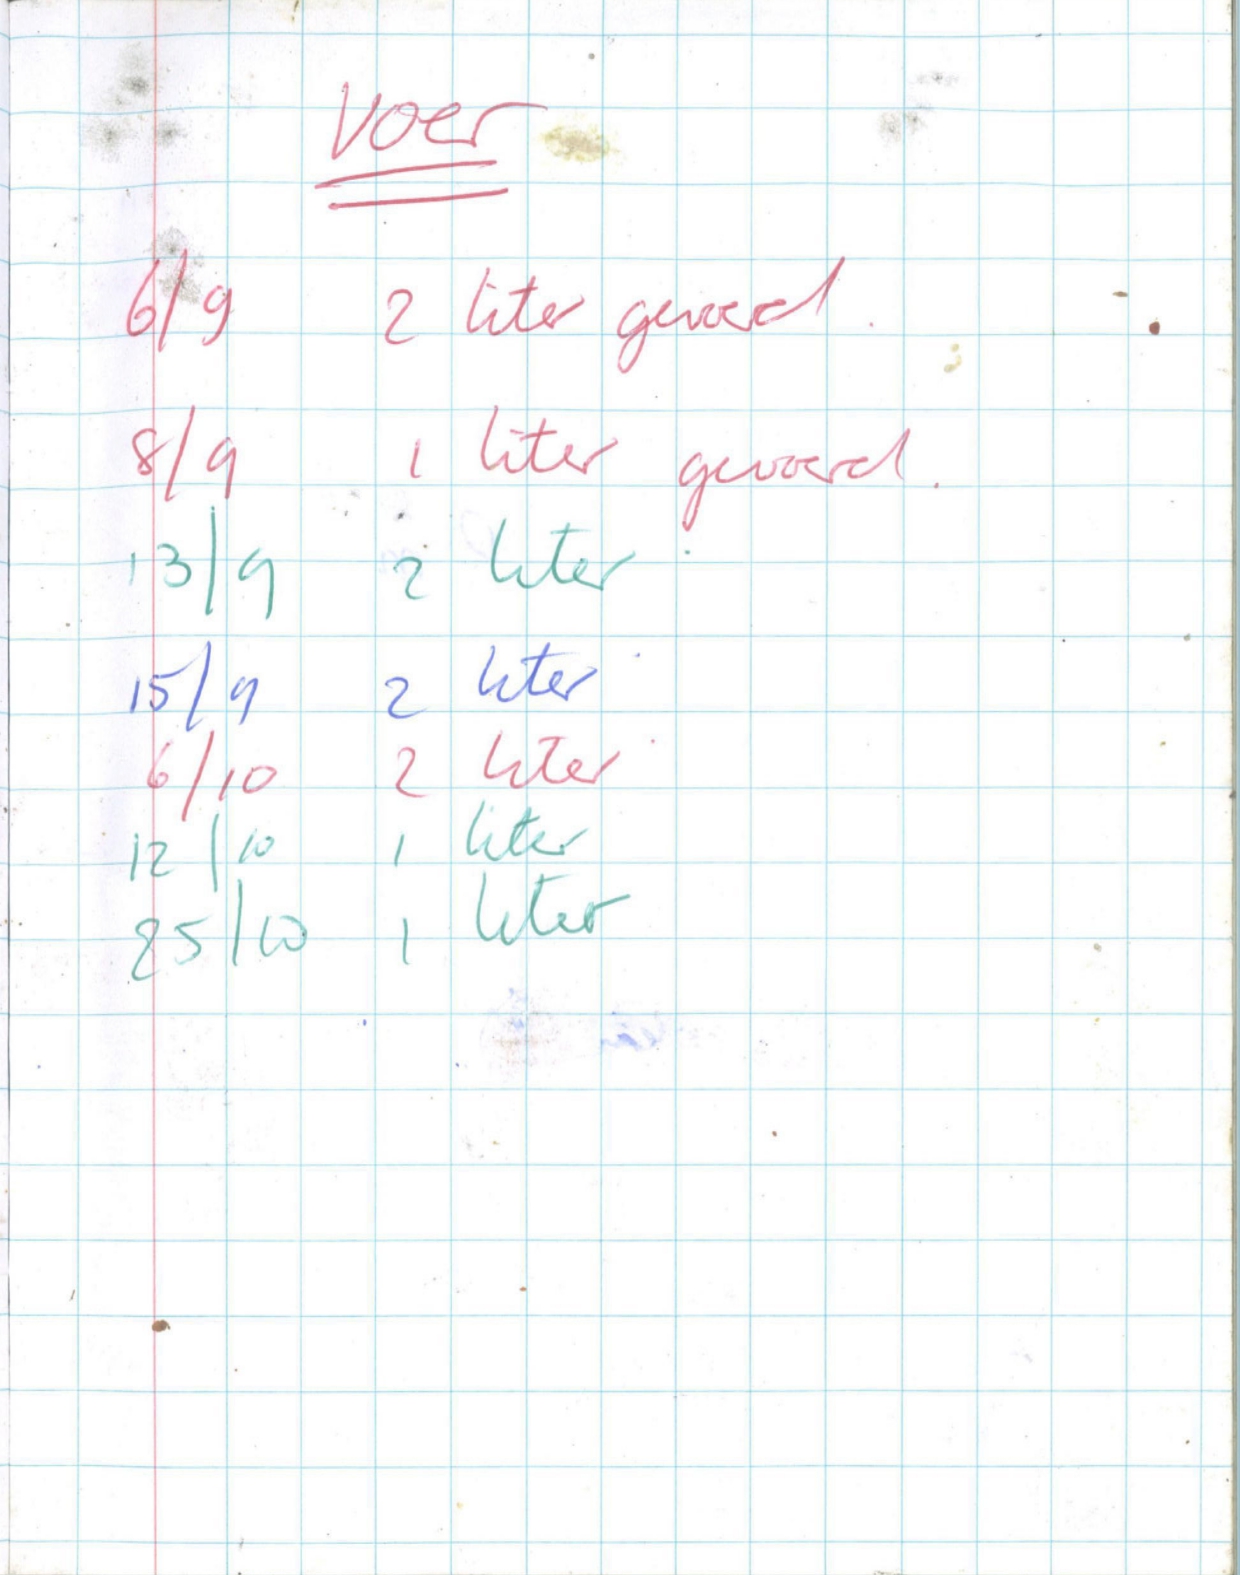 Voer
6/9 2 liter gevoerd.
8/9 1 liter gevoerd.
13/9 2 liter
15/9 2 liter
6/10 2 liter
12/10 1 liter
25/10 1 liter